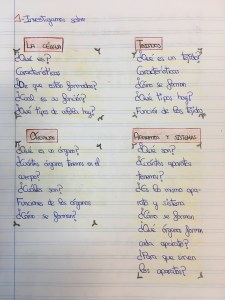 1.-Investigamos sobre
LA CÉLULA
¿Qué es?
Características
¿De qué están formadas?
¿Cuál es su función?
¿Qué tipos de célula hay?
TEJIDOS
¿Qué es un tejido?
Características
¿Cómo se forman
¿Qué tipos hay?
Función de los tejidos
ÓRGANOS
¿Qué es un órgano?
¿Cuántos órganos tenemos en el
cuerpo?
¿Cuáles son?
Funciones de los órganos
¿Cómo se forman?
APARATOS Y SISTEMAS
¿Qué son?
¿Cuántos aparatos
tenemos?
¿Es lo mismo apa-
rato y sistema
¿Cómo se forman
¿Qué órganos forman
cada aparato?
¿Para qué sirven
los aparatos?